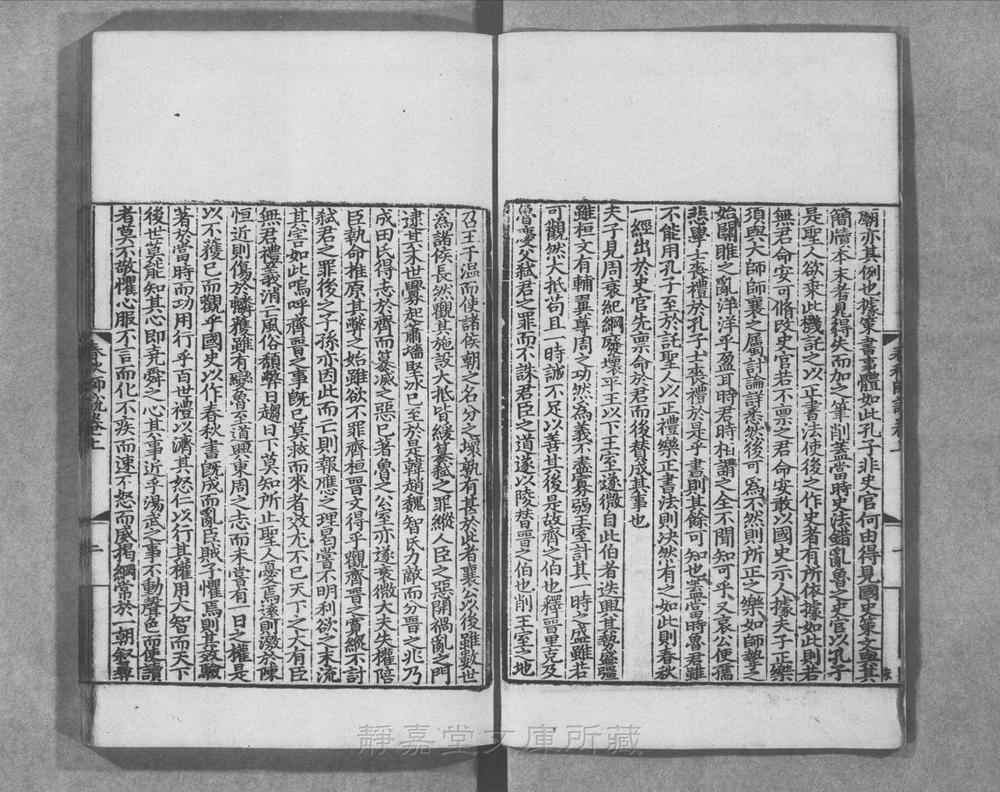 廟亦其例也據策書事體如此孔子非史官何由得見國史策文與其
簡牘本末考見得失而加之筆削蓋當時史法錯亂魯之史官以孔子
是聖人欲乘此機託之以正書法使後之作史者有所依據如此則若
無君命安可脩改史官若不禀之君命安敢以國史示人據夫子正樂
須與大師師襄之屬討論詳悉然後可爲不然則所正之樂如師摯之
始關雎之亂洋洋乎盈耳時君時相謂之全不聞知可乎又哀公使孺
悲學士喪禮於孔子士喪禮於是乎書則其餘可知也蓋當時魯君雖
不能用孔子至於託聖人以正禮樂正書法則決然有之如此則春秋
一經出於史官先禀命於君而後贊成其事也
夫子見周衰紀綱廢壞平王以下王室遂微自此伯者迭興其勢盛彊
雖桓文有輔翼尊周之功然爲義不盡寡弱王室計其一時之盛雖若
可觀然大抵苟且一時誠不足以善其後是故齊之伯也釋晋里克及
魯慶父弑君之罪而不誅君臣之道遂以陵替晋之伯也削王室之地
召王于温而使諸侯朝之名分之壞孰有甚於此者襄公以後雖數世
爲諸侯長然觀其施設大抵皆緩簒弑之罪縱人臣之惡開禍亂之門
逮其末世釁起蕭墻堅冰已至於是韓趙魏智氏力敵而分晋之兆乃
成田氏得志於齊而簒滅之惡已著魯之公室亦遂衰微大夫失權陪
臣執命推原其弊之始雖欲不罪齊桓晋文得乎觀齊晋之實縱不討
弑君之罪後之子孫亦因此而亡則報應之理曷嘗不明利欲之末流
其害如此嗚呼齊晋之事旣已莫救而來者效尤不已天下之大有臣
無君禮義消亡風俗頹弊日趨日下莫知所止聖人憂焉遠則激於陳
恒近則傷於麟獲雖有變魯至道興東周之志而未嘗有一日之權是
以不獲已而觀乎國史以作春秋書旣成而亂臣賊子懼焉則其效驗
著於當時而功用行乎百世禮以濟其怒仁以行其權用大智而天下
後世莫能知其心即堯舜之心其事近乎湯武之事不動聲色而使讀
者莫不敬懼心服不言而化不疾而速不怒而威揭綱常於一朝叙彝
春秋師說卷上
二
靜嘉堂文庫所藏